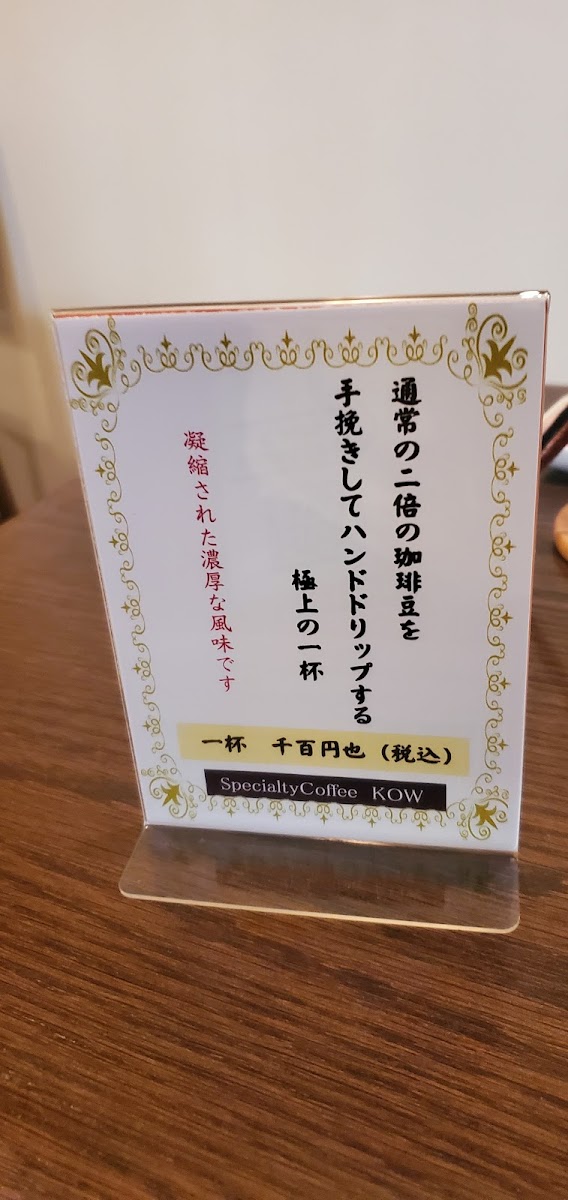 通常の二倍の珈琲豆を
手挽きしてハンドドリップする
極上の一杯
凝縮された濃厚な風味です
一杯　千百円也（税込）
SpecialtyCoffee KOW